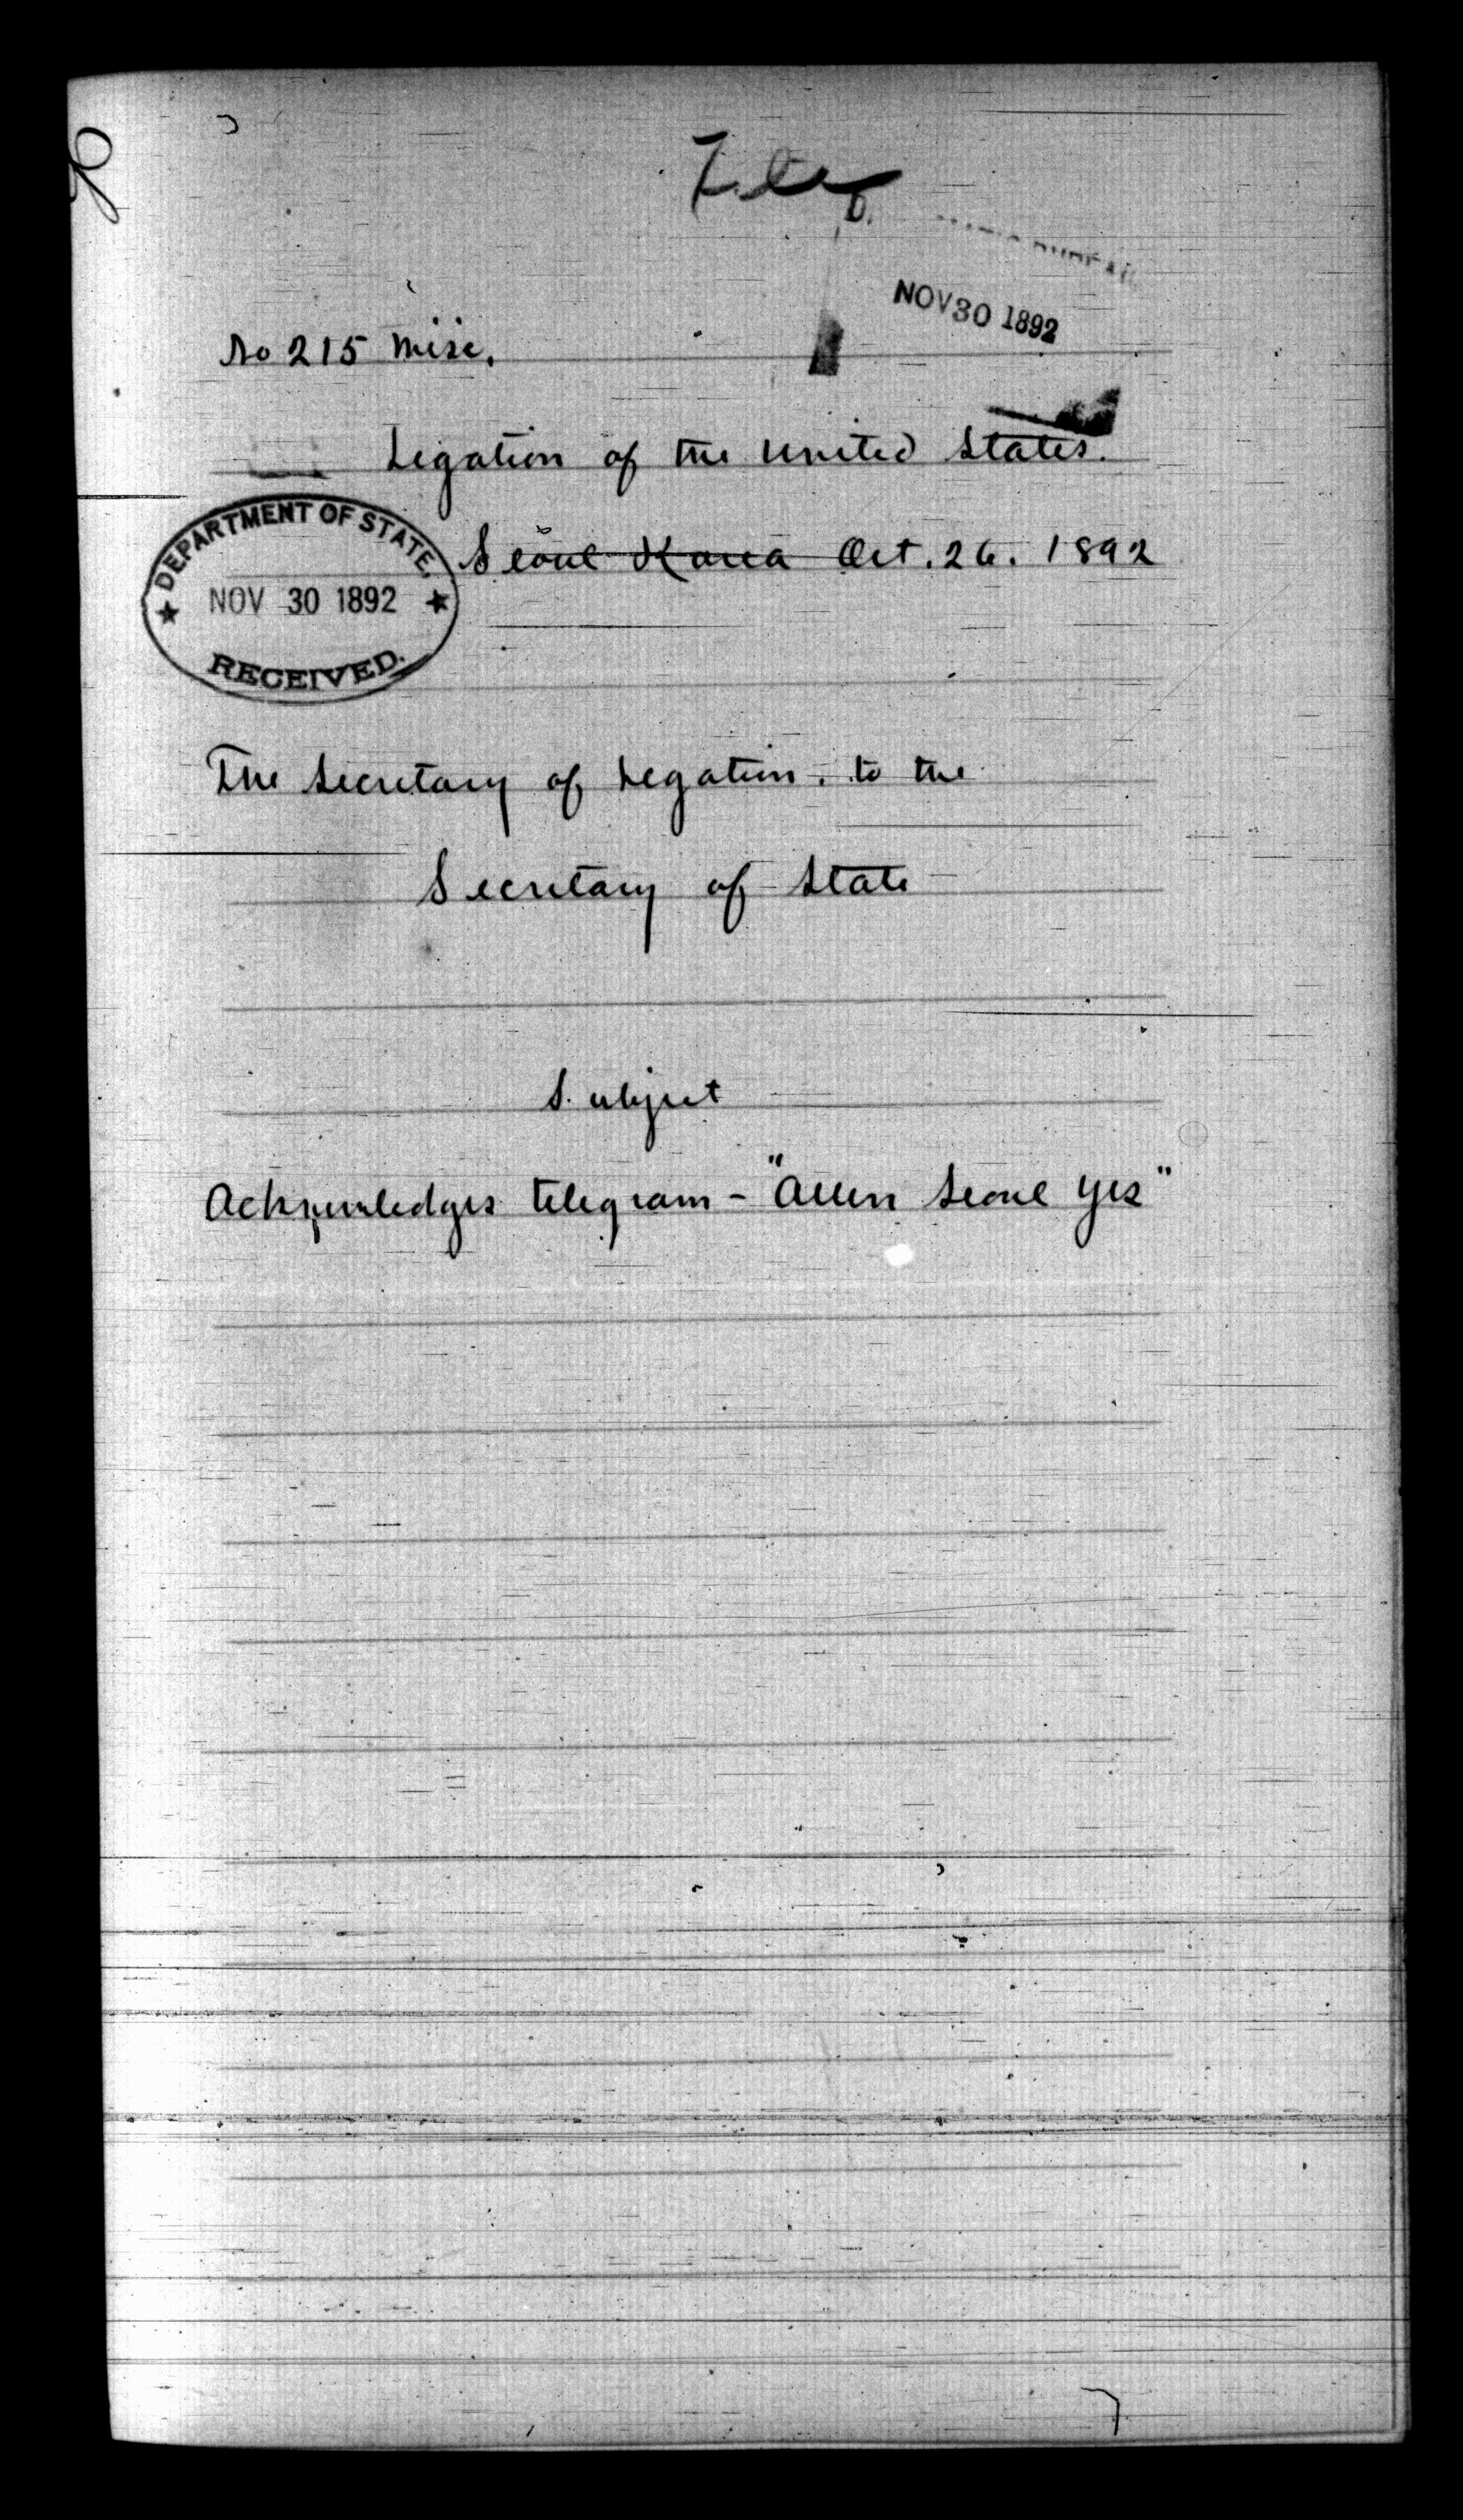 NOV 30 1892
No 215 Misc.
Legation of the United States.
Seoul Korea Oct. 26. 1892
DEPARTMENT OF STATE.
NOV 30 1892
RECEIVED.
The Secretary of Legation. to the
Secretary of State
Subject
Acknowledges telegram - "Allen Seoul Yes"